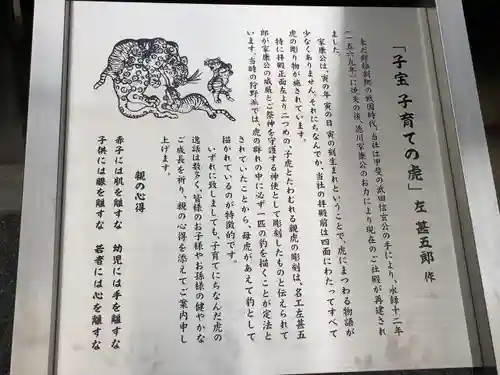 「子宝 子育ての虎」 左 甚五郎 作
未だ群雄割拠の戦国時代、当社は甲斐の武田信玄公の手により、永禄十二年
（一五六九年）に焼失の後、徳川家康公のお力により現在のご社殿が再建され
ました。
家康公は、寅の年 寅の日 寅の刻生まれということで、虎にまつわる物語が
少なくありません。それにちなんでか、当社の拝殿前は四面にわたってすべて
虎の彫り物が施されています。
特に拝殿正面左より二つめの、子虎とたわむれる親虎の彫刻は、名工左甚五
郎が家康公の威厳とご祭神を守護する神使として彫刻したものと伝えられて
います。当時の狩野派では、虎の群れの中に必ず一匹の豹を描くことが定法と
されていたことから、母虎があえて豹として
描かれているのが特徴的です。
いずれに致しましても、子育てにちなんだ虎の
逸話は数多く、皆様のお子様やお孫様の健やかな
ご成長を祈り、親の心得を添えてご案内申し
上げます。
親の心得
赤子には肌を離すな 幼児には手を離すな
子供には眼を離すな 若者には心を離すな